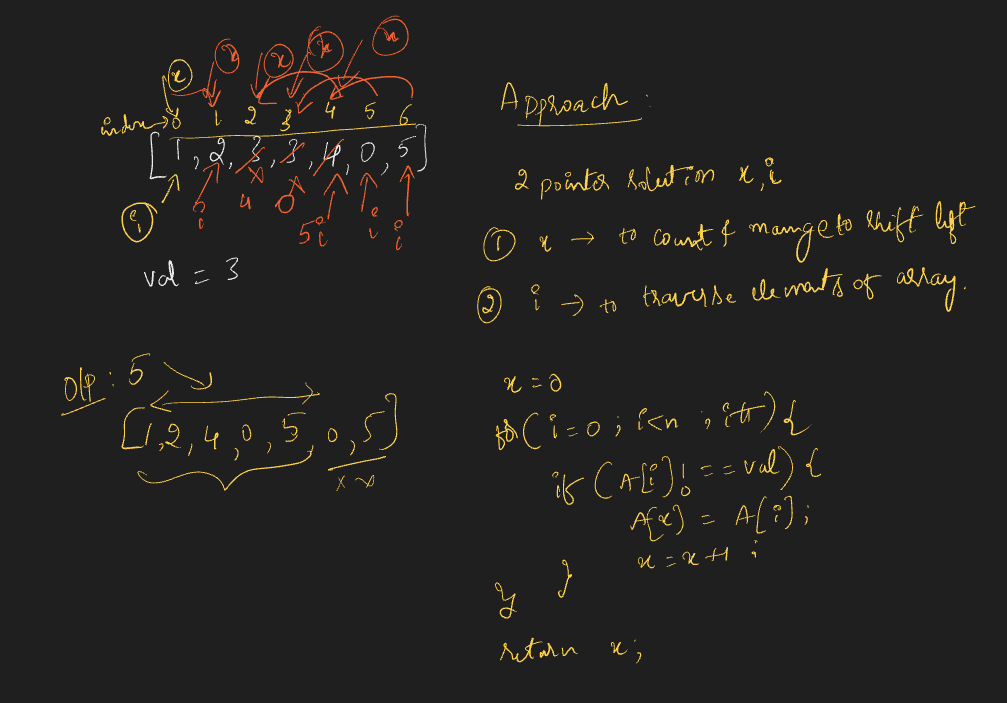 x x x x x
index → 0 1 2 3 4 5 6
[1, 2, 3, 3, 4, 0, 5]
4 0 5
i i i i i
val = 3
O/P : 5
[1, 2, 4, 0, 5, 0, 5]
x x
Approach :
2 pointer solution x, i
① x → to count & mange to shift left
② i → to traverse elements of array.
x = 0
for ( i = 0 ; i < n ; i++ ) {
if ( A[i] ! == val ) {
A[x] = A[i] ;
x = x + 1 ;
}
}
return x ;